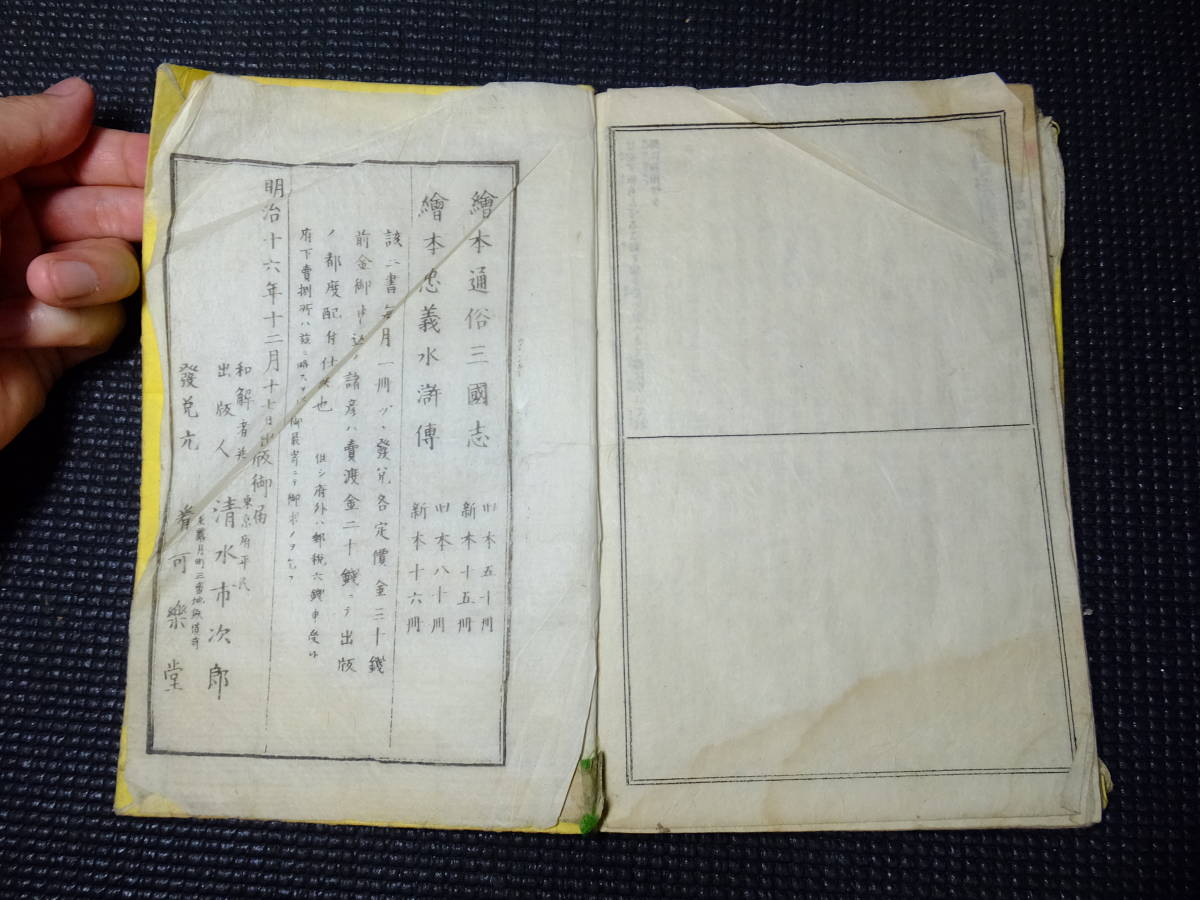 繪本通俗三國志
旧本五十冊
新本十五冊
繪本忠義水滸傳
旧本八十冊
新本十六冊
該二書每月一冊ヅヽ發兌各定價金三十錢
前金御申込ノ諸彦ハ賣渡金二十錢ニテ出版
ノ都度配付仕候也
但シ府外ハ郵稅六錢申受ケ
府下賣捌所ハ玆ニ略ス
明治十六年十二月十七日出版御届
和解者兼
出版人
東京府平民
清水市次郎
發兌元
肴可樂堂